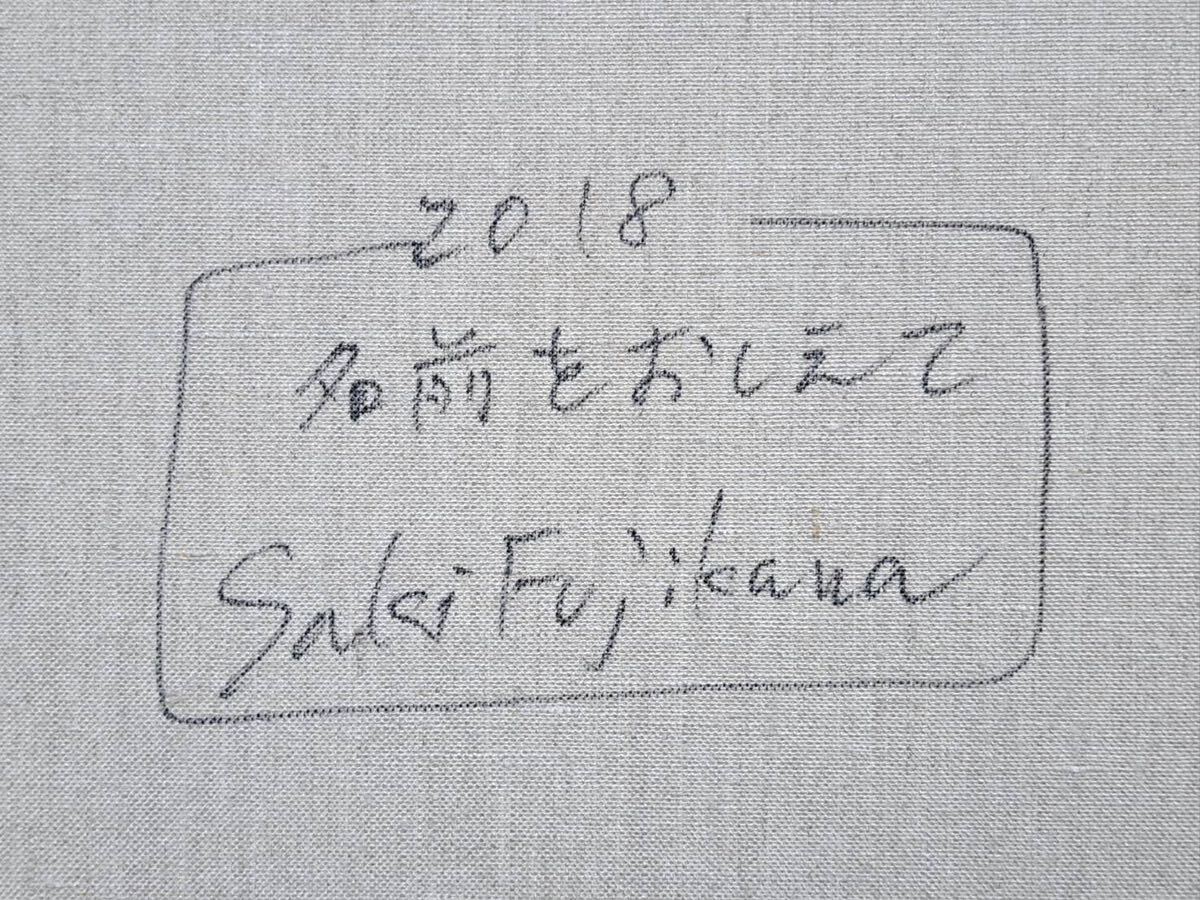 2018
名前をおしえて
Saki Fujikawa